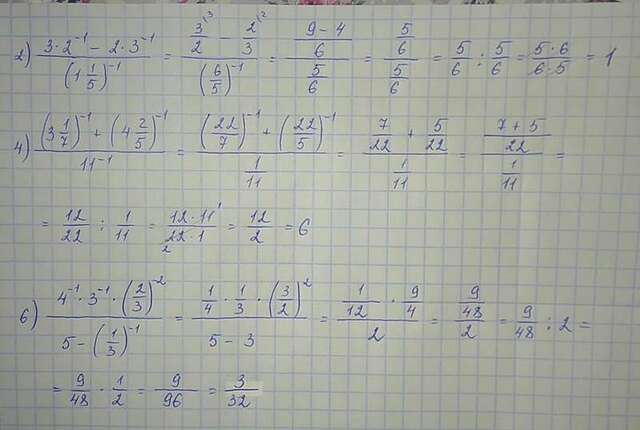 2) (3·2⁻¹ − 2·3⁻¹)/(1 1/5)⁻¹ = (3/2 ⁽³ − 2/3 ⁽²)/(6/5)⁻¹ = ((9−4)/6)/(5/6) = (5/6)/(5/6) = 5/6 : 5/6 = 5·6/6·5 = 1
4) ((3 1/7)⁻¹ + (4 2/5)⁻¹)/11⁻¹ = ((22/7)⁻¹ + (22/5)⁻¹)/(1/11) = (7/22 + 5/22)/(1/11) = ((7+5)/22)/(1/11) =
= 12/22 : 1/11 = 12·11¹/22₂·1 = 12/2 = 6
6) (4⁻¹·3⁻¹·(2/3)⁻²)/(5 − (1/3)⁻¹) = (1/4 · 1/3 · (3/2)²)/(5 − 3) = (1/12 · 9/4)/2 = (9/48)/2 = 9/48 : 2 =
= 9/48 · 1/2 = 9/96 = 3/32